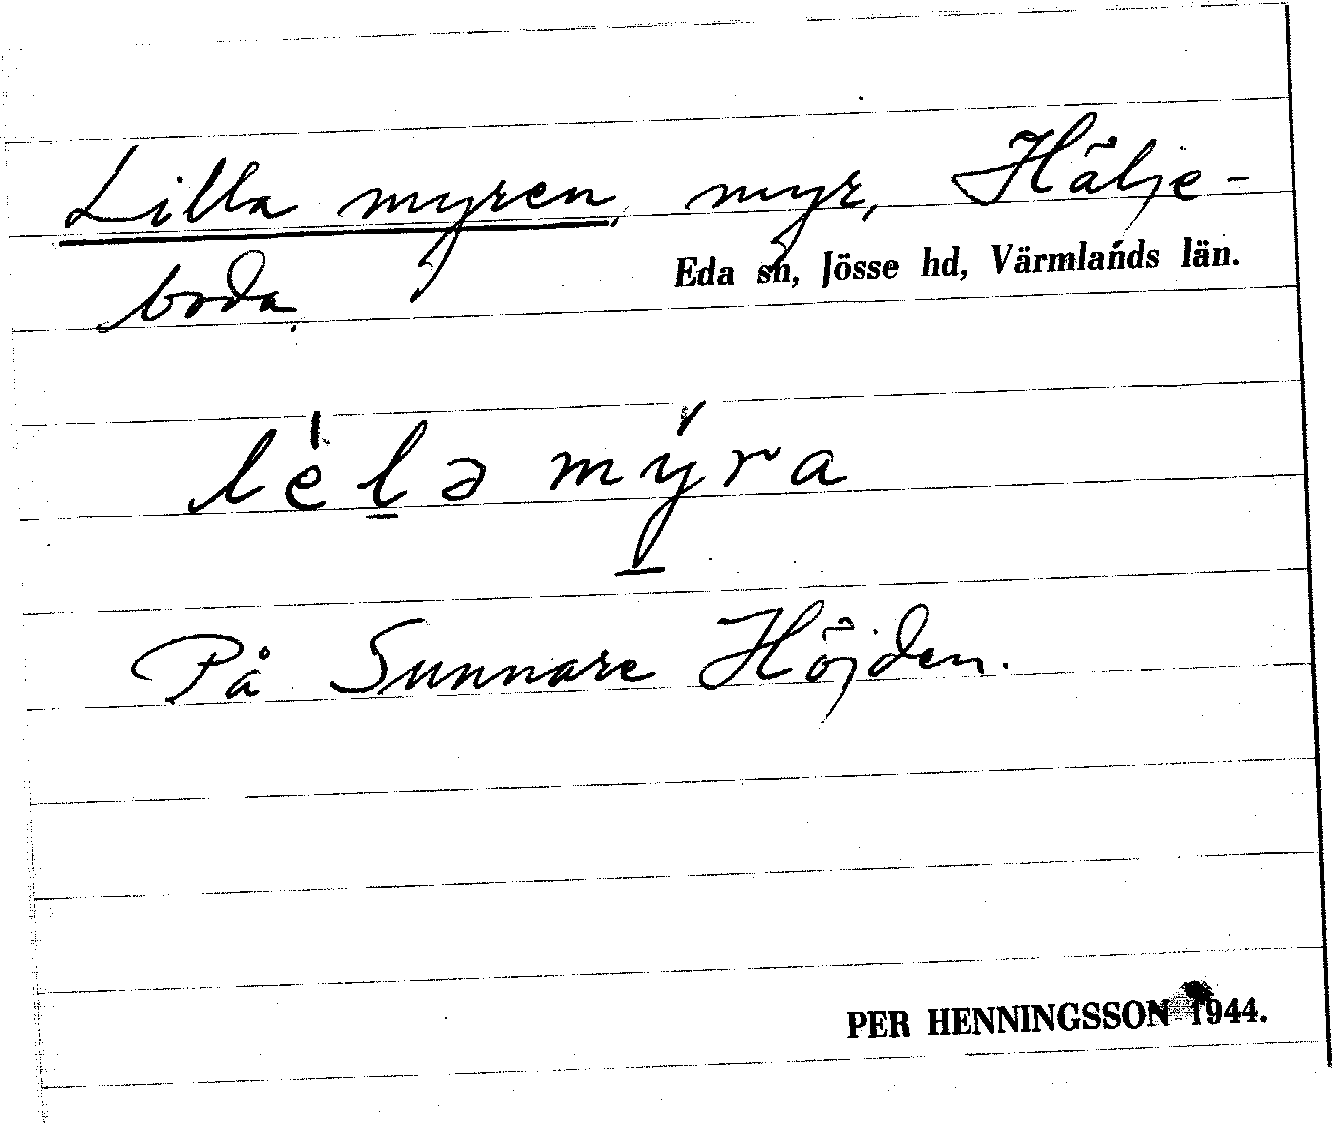 Lilla myren, myr, Hälje-
boda.
Eda sn, Jösse hd, Värmlands län.
lélə mýra
På Sunnare Höjden.
PER HENNINGSSON 1944.